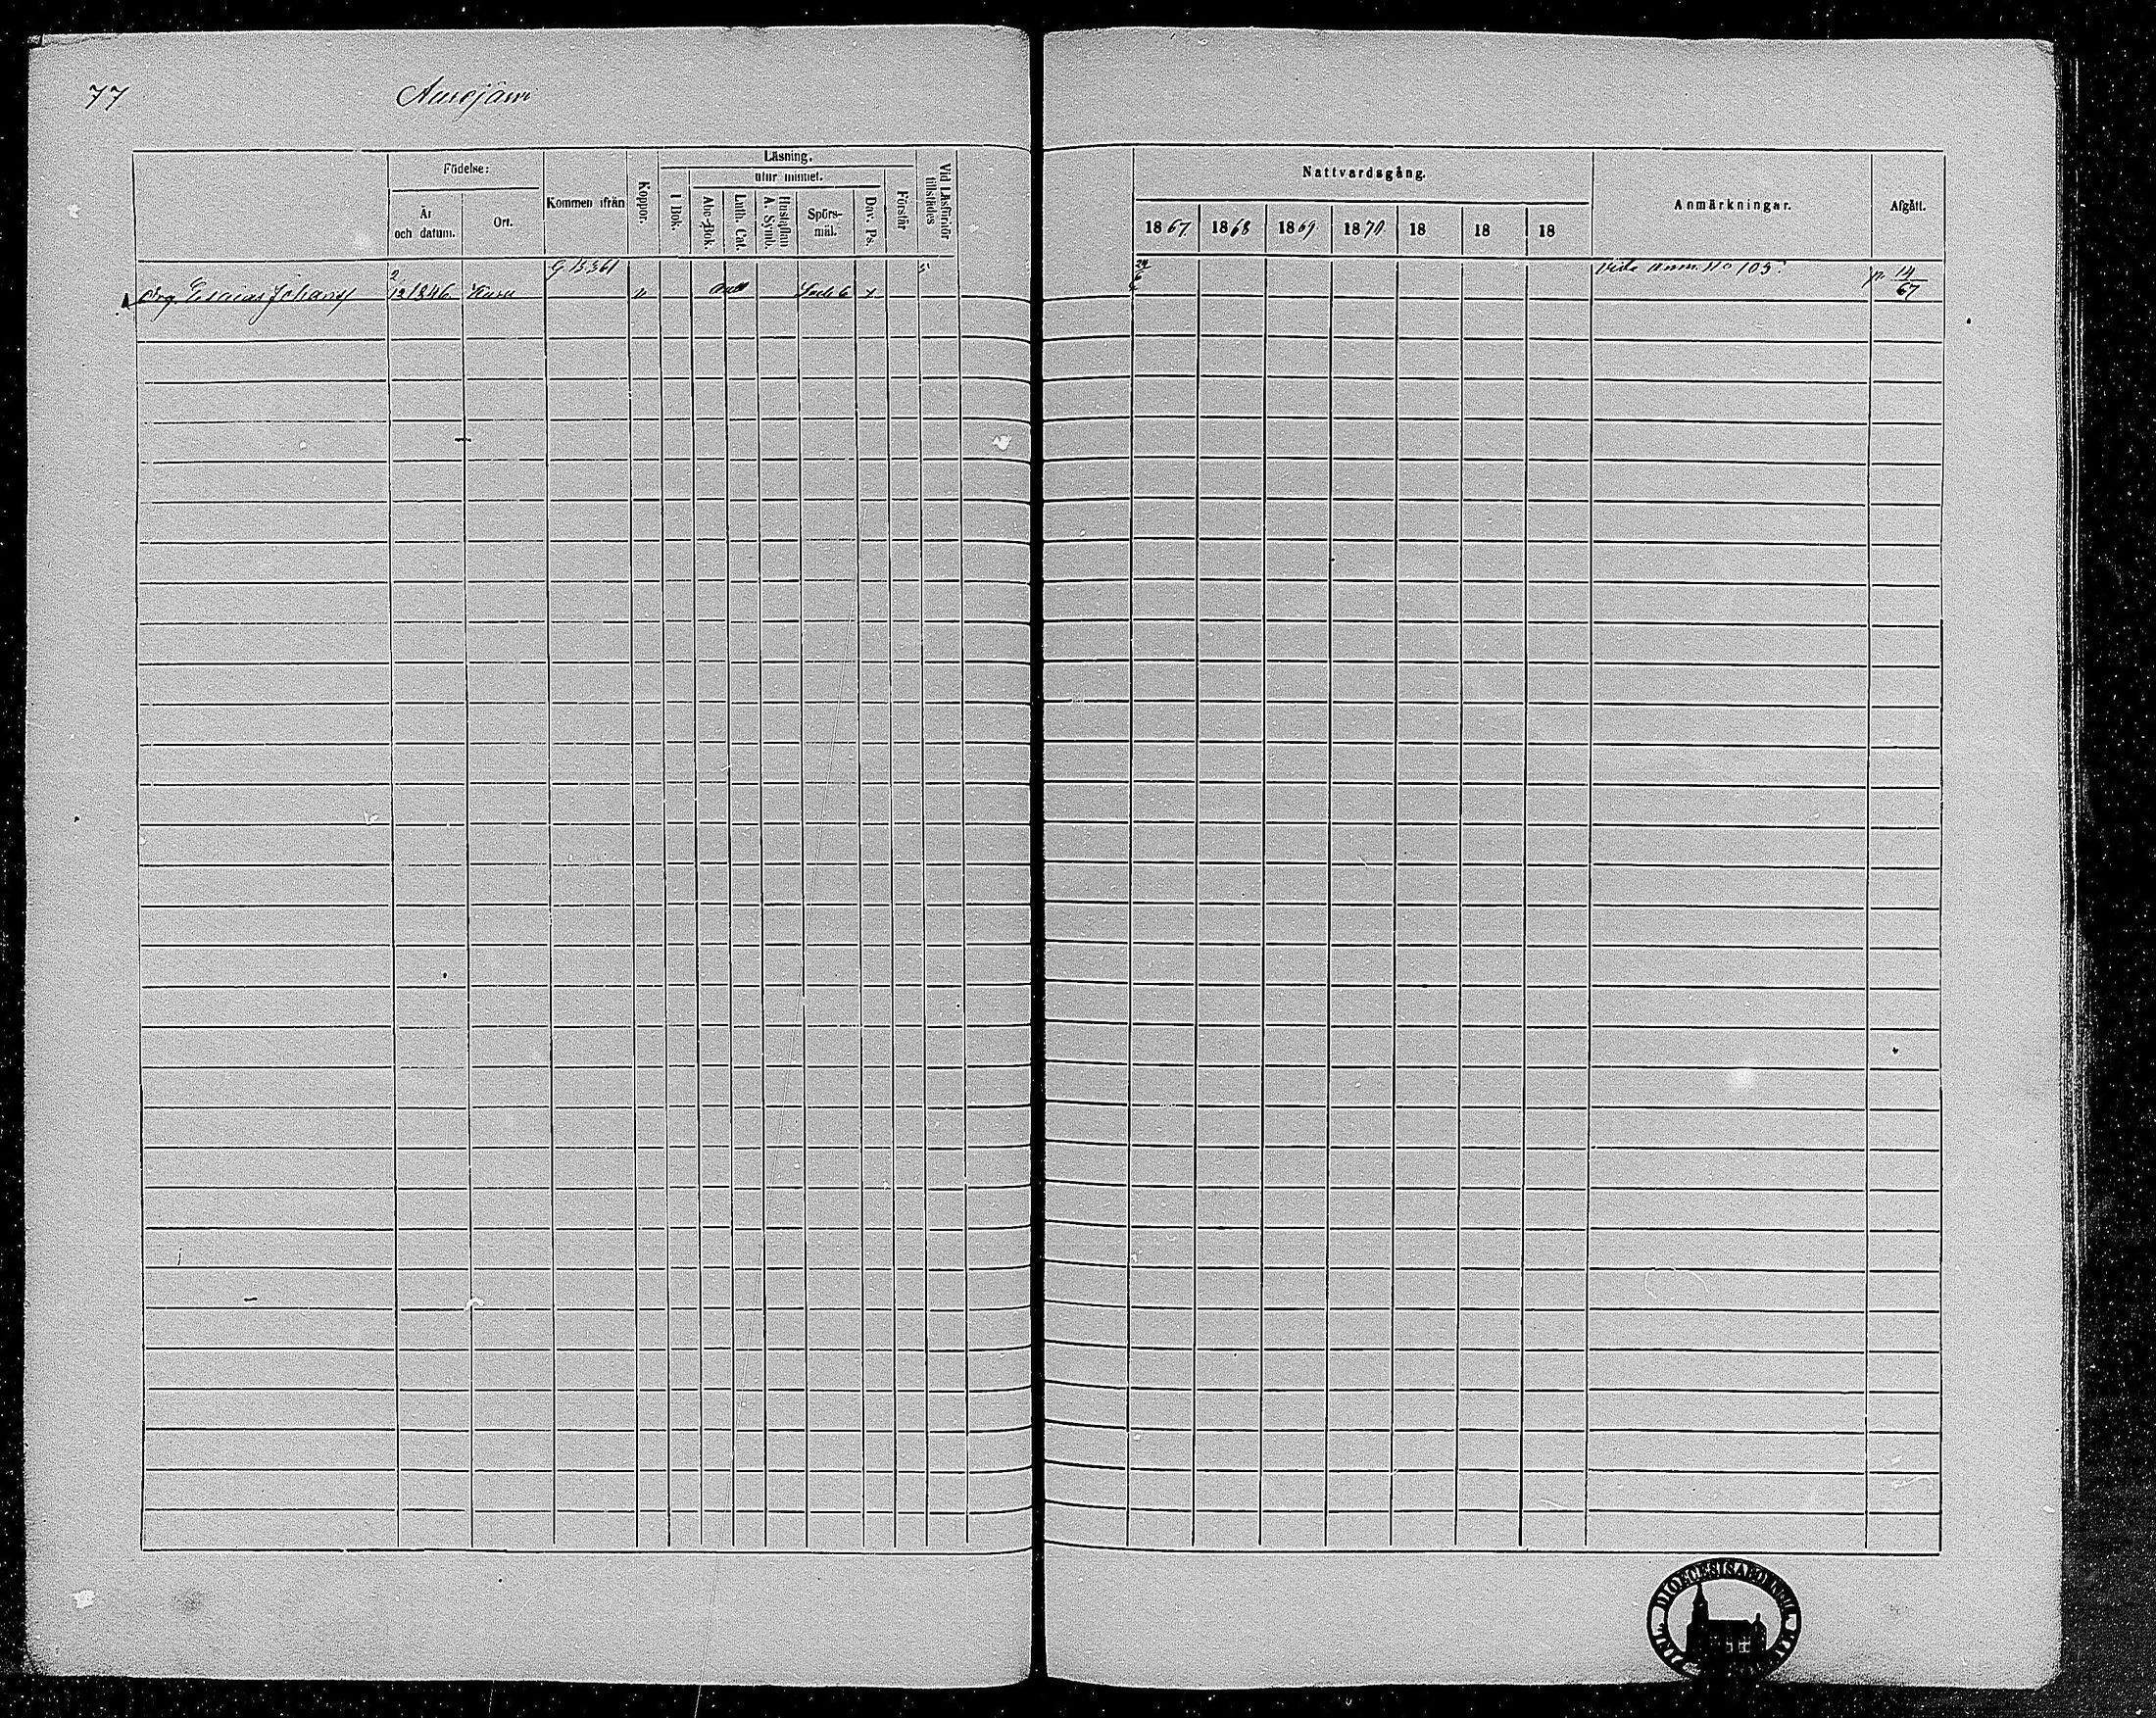 77
Aurejärvi
Födelse:
År
och datum.
Ort.
Kommen ifrån
Koppor.
Läsning.
I Bok.
utur minnet.
Abc-Bok.
Luth. Cat.
Hustaflan
A. Symb.
Spörs-
mål.
Dav. Ps.
Förstår
Vid Läsförhör
tillstädes
Nattvardsgång.
1867.
1868
1869.
1870
18
18
18
Anmärkningar.
Afgått.
Drg Esaias Johanss
2/12 1846
Kuru
"
6
x
5
24/6
vide anm. No 105.
p. 14/67